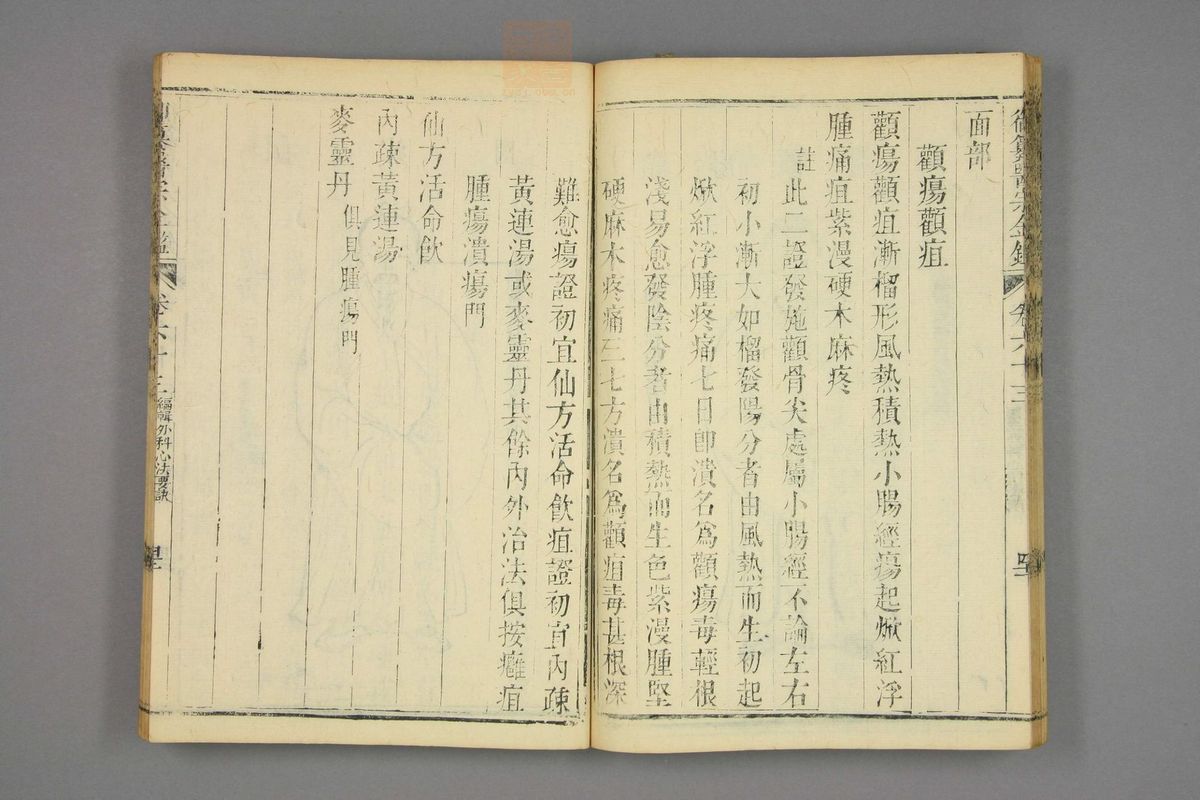 御纂醫宗金鑑 卷六十三
面部
顴瘍顴疽
顴瘍顴疽漸榴形風熱積熱小腸經瘍起焮紅浮
腫痛疽紫漫硬木麻疼
註此二證發於顴骨尖處屬小腸經不論左右
初小漸大如榴發陽分者由風熱而生初起
焮紅浮腫疼痛七日卽潰名爲顴瘍毒輕根
淺易愈發陰分者由積熱而生色紫漫腫堅
硬麻木疼痛三七方潰名爲顴疽毒甚根深
難愈瘍證初宜仙方活命飮疽證初宜內疎
黃連湯或麥靈丹其餘內外治法俱按癰疽
腫瘍潰瘍門
仙方活命飮
內疎黃連湯
麥靈丹 俱見腫瘍門
卷六十三 編輯外科心法要訣